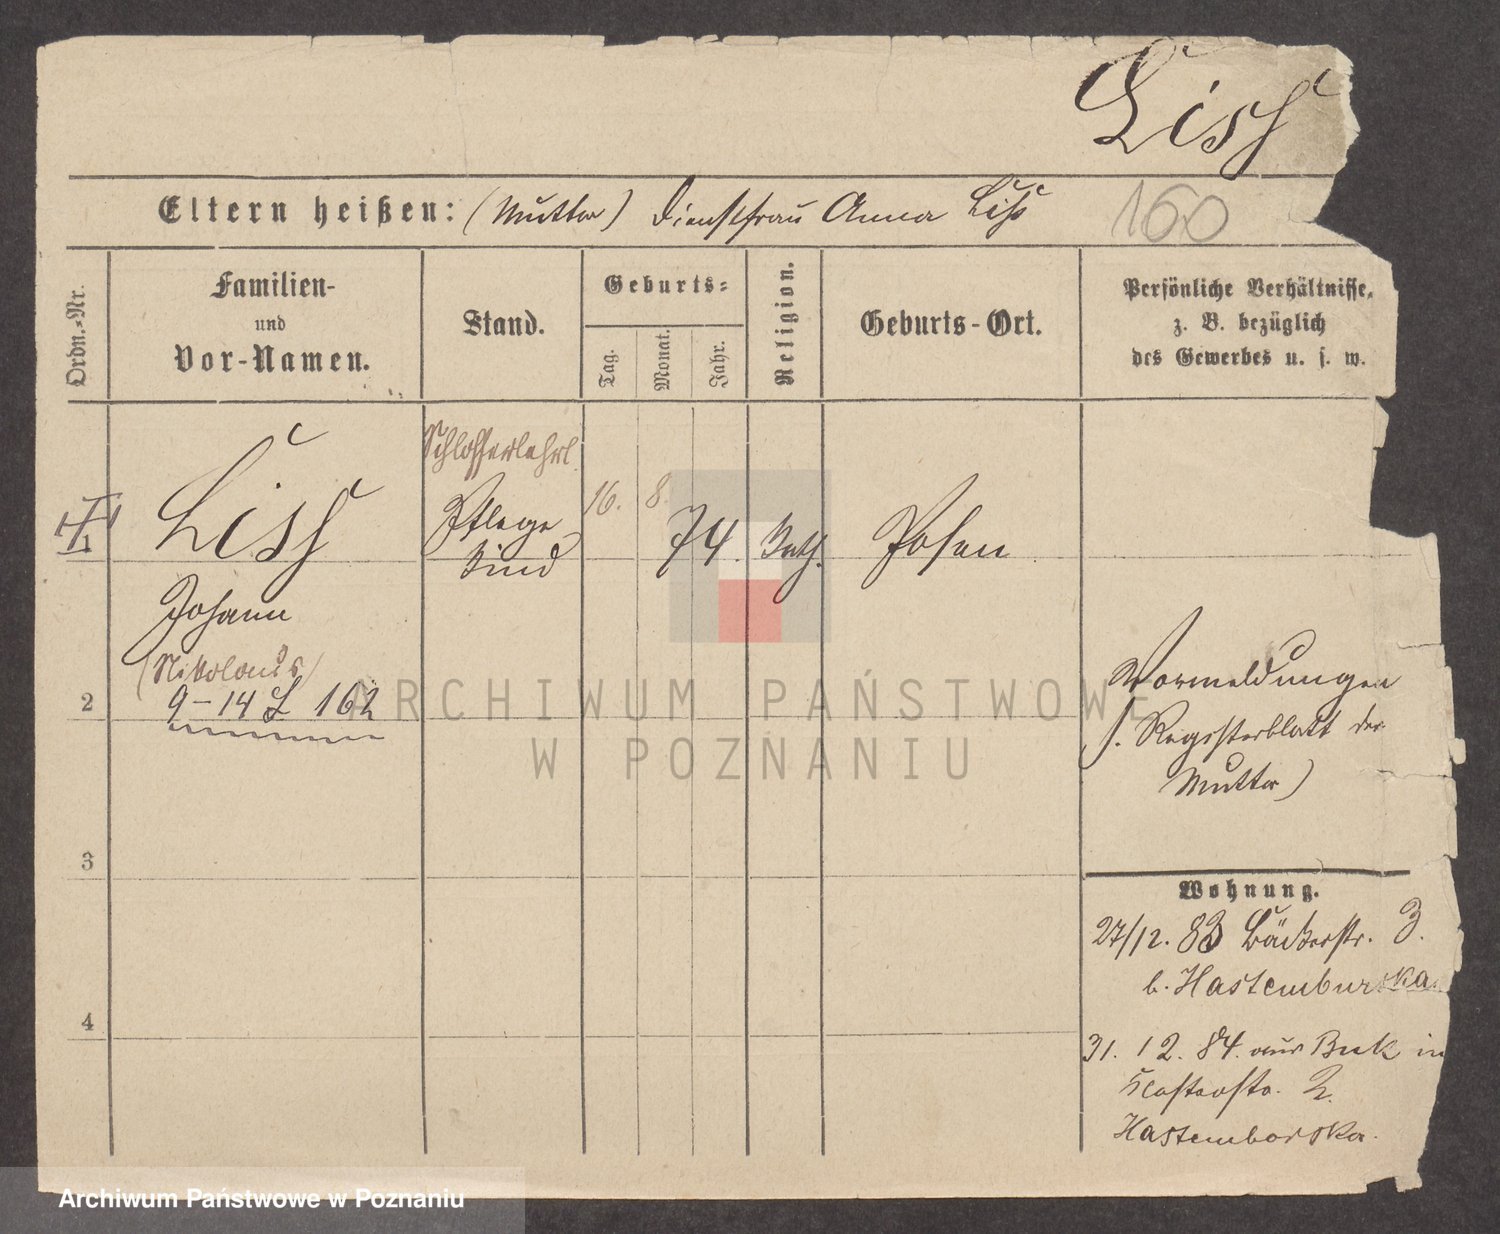 Liss
Eltern heißen: (Mutter) Dienstfrau Anna Liß
160
Ordn.-Nr.
Familien-
und
Vor-Namen.
Stand.
Geburts-
Tag.
Monat.
Jahr.
Religion.
Geburts-Ort.
Persönliche Verhältnisse,
z. B. bezüglich
des Gewerbes u. s. w.
Schlosserlehrl.
1
Liss
Pflege
kind
16.
8.
74.
Kath.
Posen
Johann
(Nikolaus)
9-14 L 162
2
Vormeldungen
s. Registerblatt der
Mutter)
3
Wohnung.
27/12. 83 Bäckerstr. 3.
b. Hastemburska
4
31. 12. 84. aus Buk in
Klosterstr. 2.
Hastemborska.
ARCHIWUM PAŃSTWOWE
W POZNANIU
Archiwum Państwowe w Poznaniu